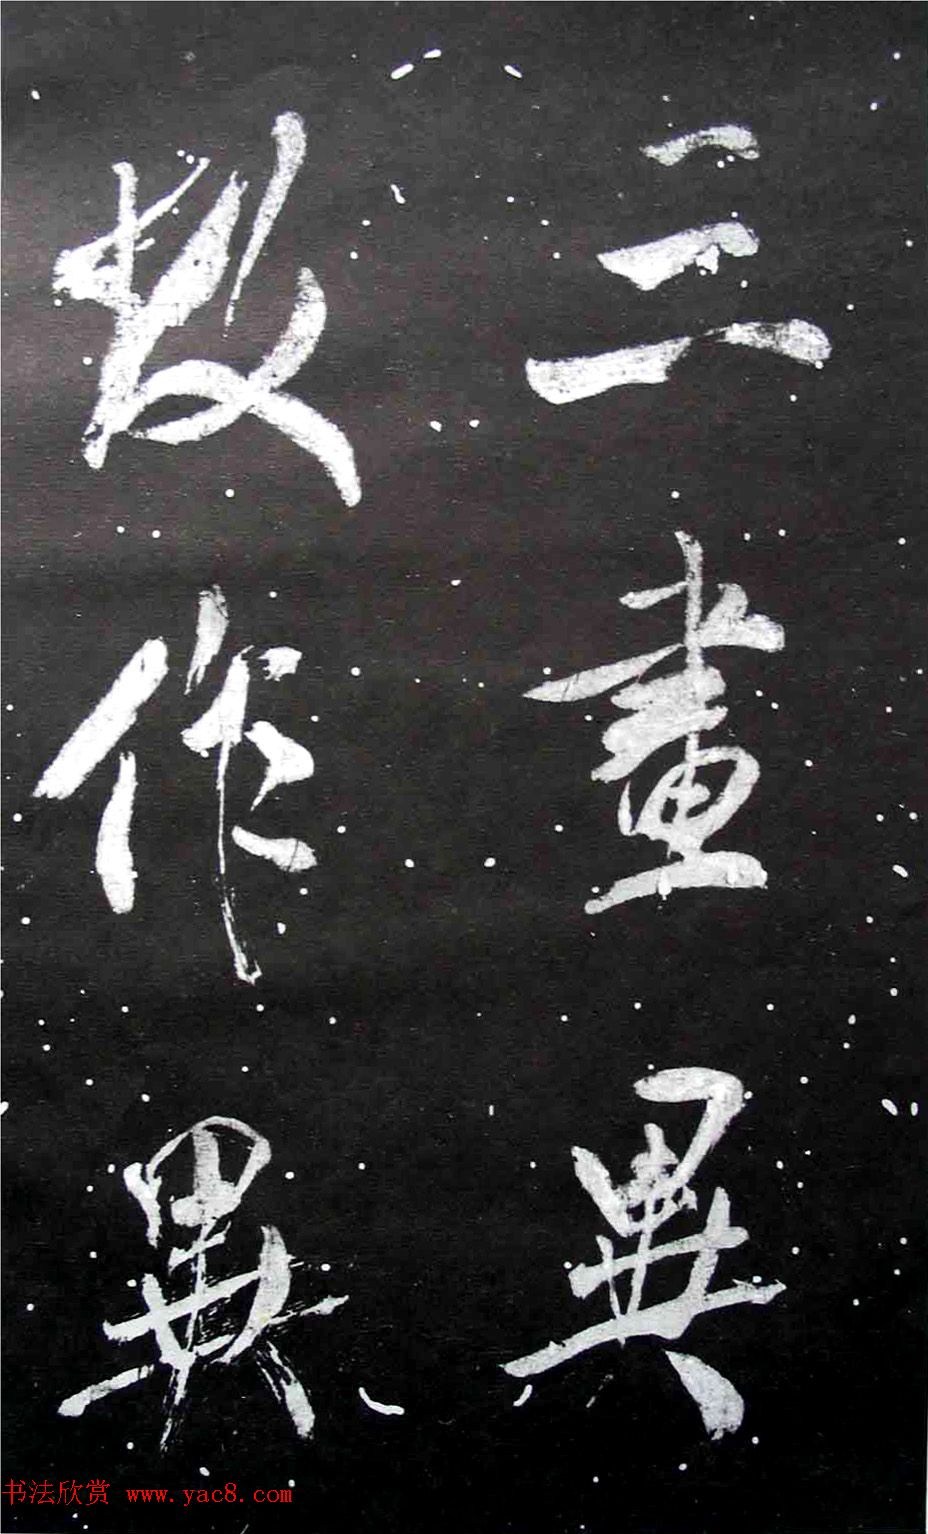 三畫異
故作異
书法欣赏 www.yac8.com